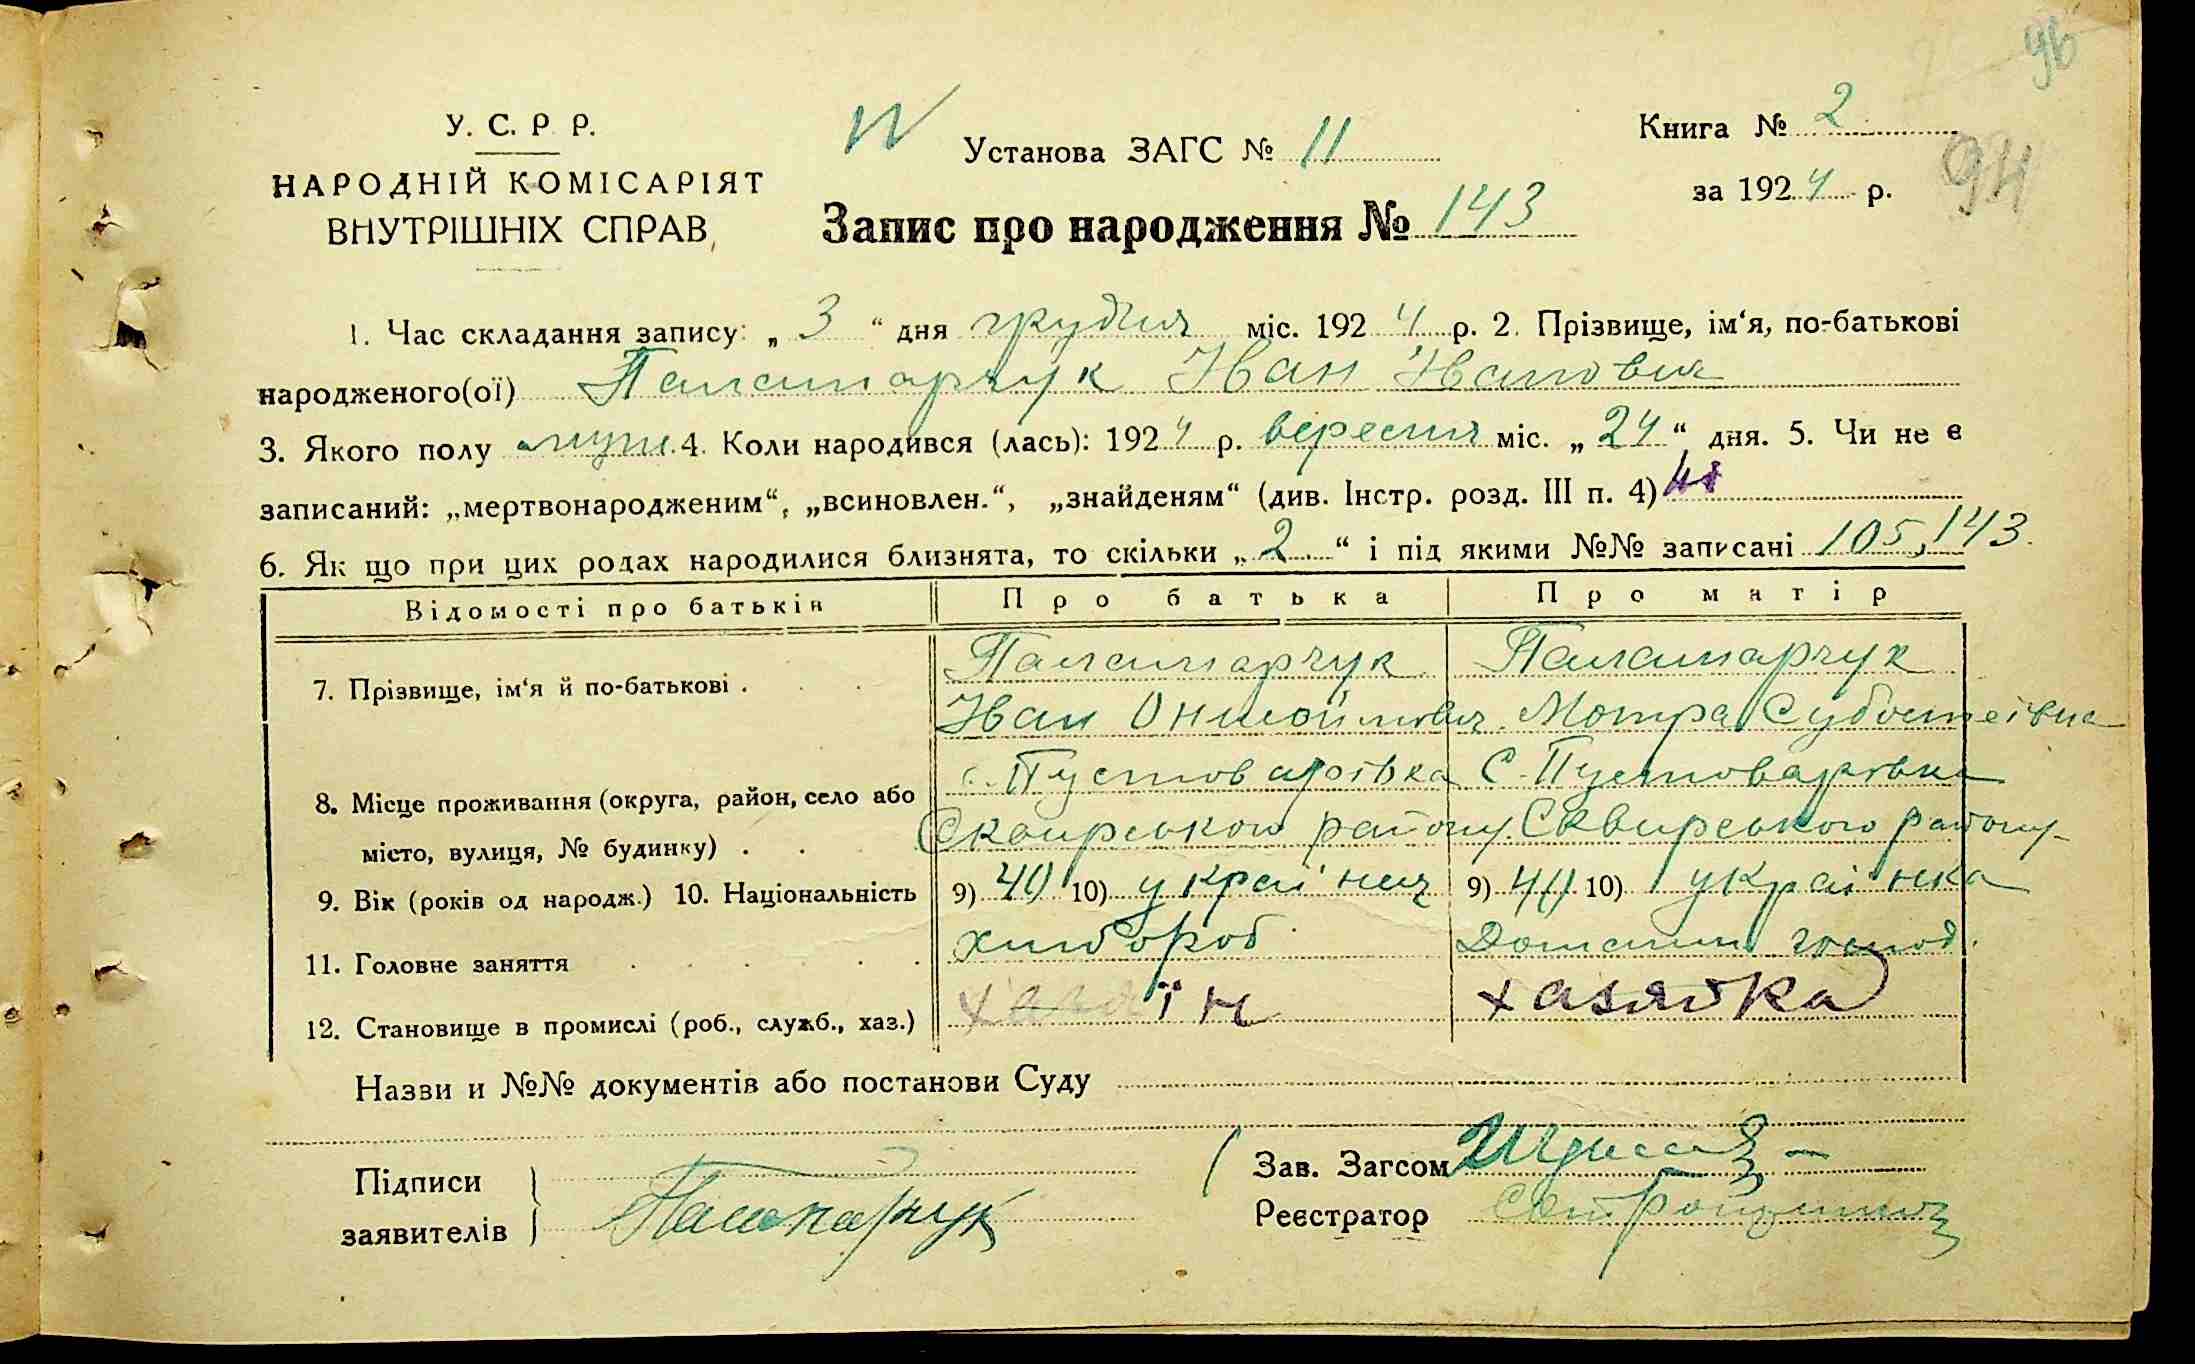 96
У. С. Р. Р.
НАРОДНІЙ КОМІСАРІЯТ
ВНУТРІШНІХ СПРАВ
Установа ЗАГС № 11
Книга № 2
за 1924 р.
94
Запис про народження № 143
1. Час складання запису: „ 3 “ дня грудня міс. 1924 р. 2. Прізвище, ім‘я, по-батькові
народженого(ої) Паламарчук Іван Іванович
3. Якого полу 4. Коли народився (лась): 1924 р. вересня міс. „ 24 “ дня. 5. Чи не є
записаний: „мертвонародженим“, „всиновлен.“, „знайденям“ (див. Інстр. розд. III п. 4) ні
6. Як що при цих родах народилися близнята, то скільки „ 2 “ і під якими №№ записані 105, 143.
Відомості про батьків Про батька Про матір
7. Прізвище, ім‘я й по-батькові . Паламарчук Паламарчук
Іван Мотра
с. Пустоварівка С. Пустоварівка
8. Місце проживання (округа, район, село або
місто, вулиця, № будинку) . Сквирського району. Сквирського району
9. Вік (років од народж.) 10. Національність 9) 40 10) українец 9) 40 10) українка
11. Головне заняття хлібороб Домашнє господ.
12. Становище в промислі (роб., служб., хаз.) хазяїн хазяйка
Назви и №№ документів або постанови Суду
Підписи
заявителів Паламарчук
Зав. Загсом
Реєстратор